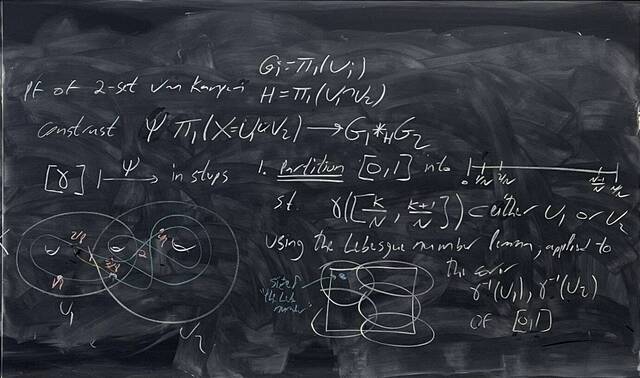 Gi = π₁(Ui)
Pf of 2-set van Kampen H = π₁(U₁∩U₂)
Construct Ψ π₁(X=U₁∪U₂) → G₁ *_H G₂
[γ] ⊢Ψ→ in steps
1. Partition [0,1] into
0 1/N 2/N N-1/N N/N
st. γ([k/N, k+1/N]) ⊂ either U₁ or U₂
Using the Lebesgue number lemma, applied to
the cover
γ⁻¹(U₁), γ⁻¹(U₂)
of [0,1]
U₁
U₂